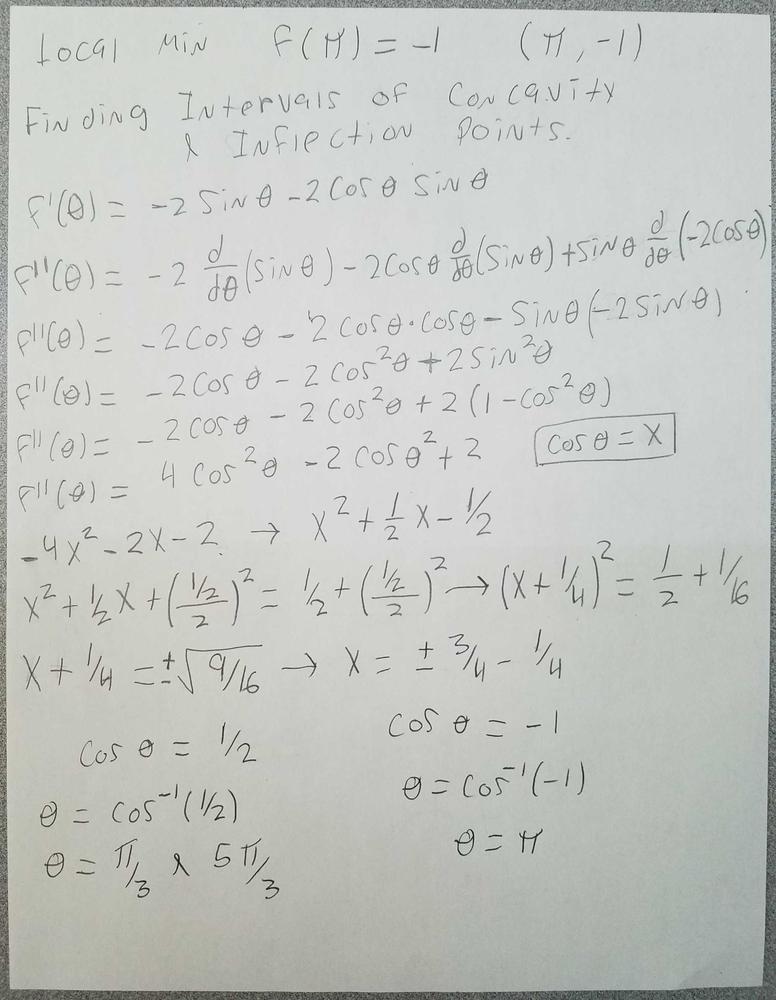 Local Min f(π) = -1 (π, -1)
Finding Intervals of Concavity
& Inflection Points.
f'(θ) = -2 Sin θ - 2 Cos θ Sin θ
f''(θ) = -2 d/dθ (Sin θ) - 2 Cos θ d/dθ (Sin θ) + Sin θ d/dθ (-2 Cos θ)
f''(θ) = -2 Cos θ - 2 Cos θ · Cos θ - Sin θ (-2 Sin θ)
f''(θ) = -2 Cos θ - 2 Cos²θ + 2 Sin²θ
f''(θ) = -2 Cos θ - 2 Cos²θ + 2 (1 - Cos²θ)
f''(θ) = 4 Cos²θ - 2 Cos θ² + 2 Cos θ = X
-4x² - 2x - 2 → x² + 1/2 x - 1/2
x² + 1/2 x + ((1/2)/2)² = 1/2 + ((1/2)/2)² → (x + 1/4)² = 1/2 + 1/16
x + 1/4 = ±√9/16 → x = ± 3/4 - 1/4
Cos θ = 1/2 Cos θ = -1
θ = Cos⁻¹(1/2) θ = Cos⁻¹(-1)
θ = π/3 & 5π/3 θ = π